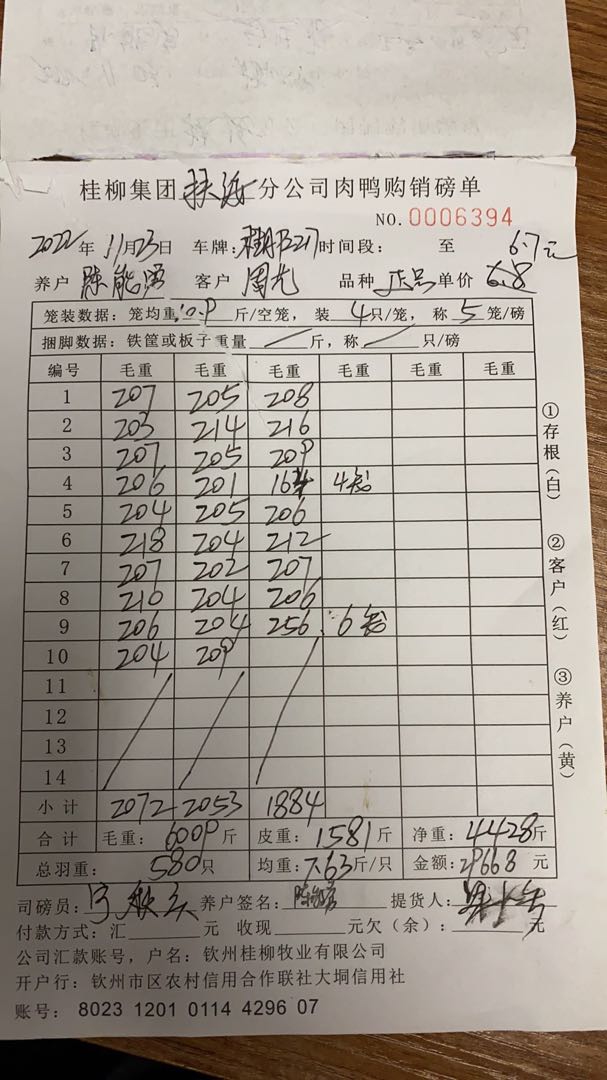 桂柳集团 分公司肉鸭购销磅单
NO.0006394
2022年11月23日 车牌: 时间段: 至 6.7元
养户 陈能 客户 周 品种 正品 单价 6.8
笼装数据:笼均重10.9斤/空笼, 装 4只/笼, 称 5 笼/磅
捆脚数据:铁筐或板子重量 斤,称 只/磅
编号 毛重 毛重 毛重 毛重 毛重 毛重
1 207 205 208
2 203 214 216
3 207 205 209
4 206 201 164 4笼
5 204 205 206
6 218 204 212
7 207 202 207
8 210 204 206
9 206 204 256 6笼
10 204 209
11
12
13
14
小计 2072 2053 1884
合计 毛重:6009斤 皮重:1581斤 净重:4428斤
总羽重: 580只 均重:7.63斤/只 金额:29668元
司磅员: 养户签名: 提货人:
付款方式:汇 元 收现 元欠(余): 元
公司汇款账号,户名:钦州桂柳牧业有限公司
开户行:钦州市区农村信用合作联社大垌信用社
账号: 8023 1201 0114 4296 07
①存根(白)
②客户(红)
③养户(黄)